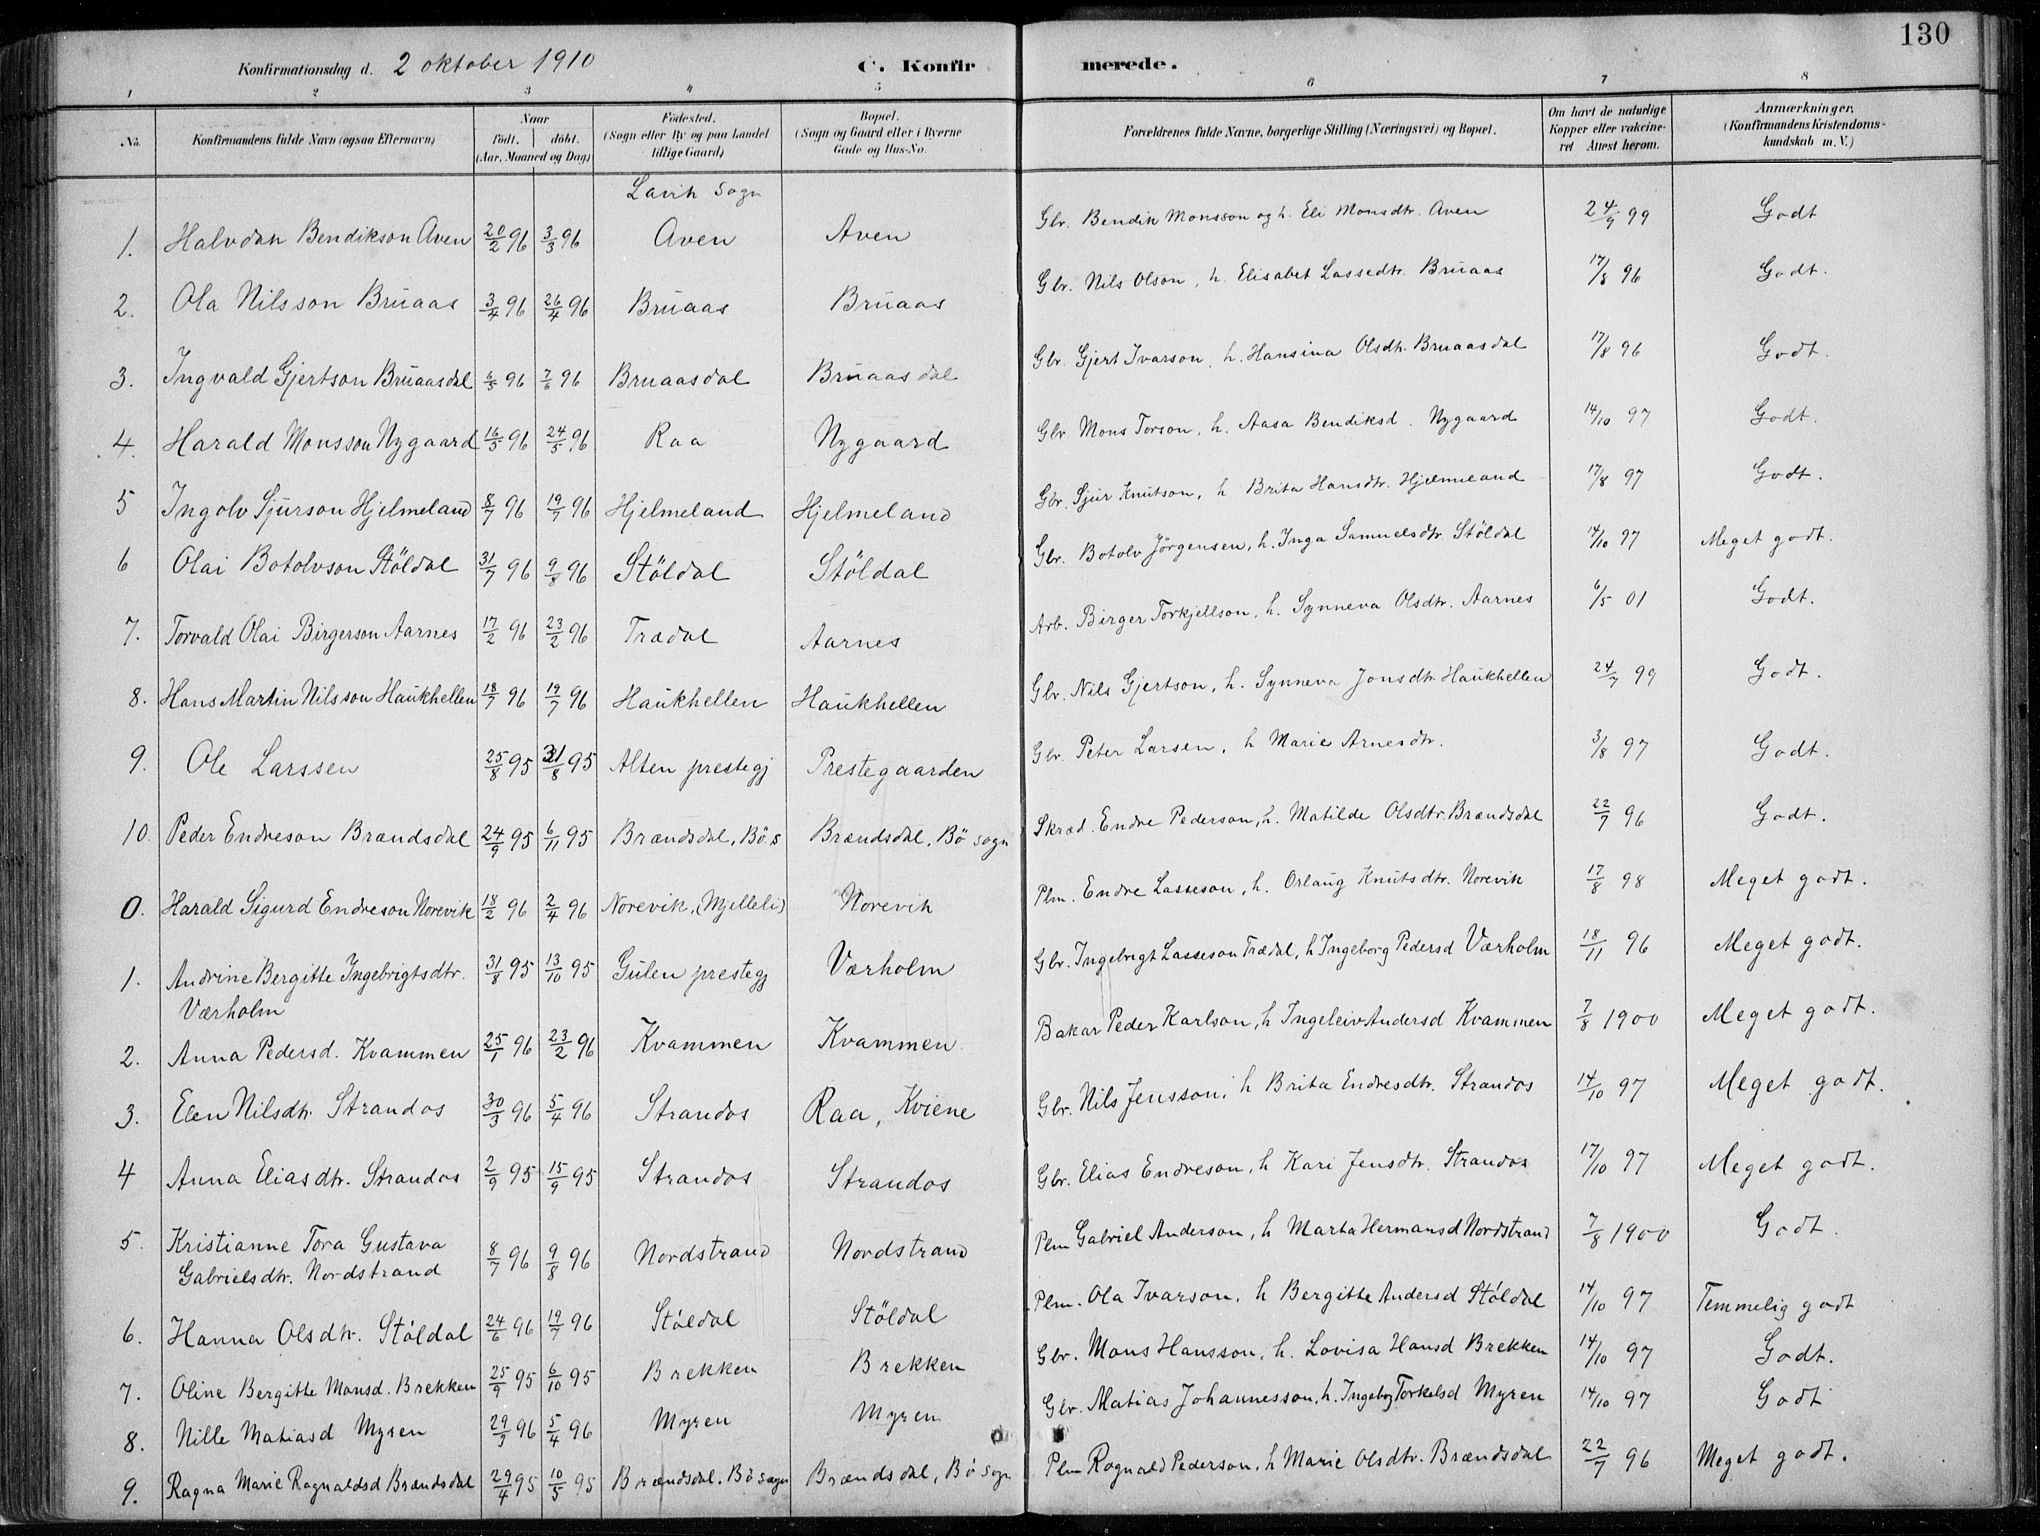 130
Konfirmationsdag d. 2 oktober 1910 C. Konfir merede.
1 2 3 4 5 6 7 8
No. Konfirmandens fulde Navn (ogsaa Efternavn) Naar födt. döbt. (Aar, Maaned og Dag) Födested. (Sogn eller By og paa Landet tillige Gaard) Bopæl. (Sogn og Gaard eller i Byerne Gade og Hus-No. Forældrenes fulde Navne, borgerlige Stilling (Næringsvei) og Bopæl. Om havt de naturlige Kopper eller vakcineret Attest herom. Anmærkninger, (Konfirmandens Kristendomskundskab m. V.)
Lavik Sogn
1. Halvdan Bendikson Aven 20/2 96 3/3 96 Aven Aven Gbr. Bendik Monsson og h. Eli Monsdtr. Aven 24/7 99 Godt
2. Ola Nilsson Bruaas 3/4 96 26/4 96 Bruaas Bruaas Gbr. Nils Olson, h. Elisabet Lassedtr. Bruaas 17/8 96 Godt.
3. Ingvald Gjertson Bruaasdal 6/5 96 7/6 96 Bruaasdal Bruaasdal Gbr. Gjert Ivarson, h. Hansina Olsdtr. Bruaasdal 17/8 96 Godt.
4. Harald Monsson Nygaard 16/5 96 24/5 96 Raa Nygaard Gbr Mons Torson, h. Aasa Bendiksd. Nygaard 14/10 97 Godt.
5 Ingolv Sjurson Hjelmeland 8/7 96 19/7 96 Hjelmeland Hjelmeland Gbr. Sjur Knutson, h Brita Hansdtr. Hjelmeland 17/8 97 Godt.
6 Olai Botolvson Stöldal 31/7 96 9/8 96 Stöldal Stöldal Gbr. Botolv Jörgensen, h. Inga Samuelsdtr. Stöldal 14/10 97 Meget godt.
7. Torvald Olai Birgerson Aarnes 17/2 96 23/2 96 Trædal Aarnes Arb. Birger Torkjellson, h. Synneva Olsdtr. Aarnes 6/5 01 Godt.
8. Hans Martin Nilsson Haukhellen 18/7 96 19/7 96 Haukhellen Haukhellen Gbr. Nils Gjertson, h. Synneva Jonsdtr Haukhellen 24/7 99 Godt.
9. Ole Larssen 25/8 95 31/8 95 Alten prestegj Prestegaarden Gbr. Peter Larsen, h Marie Arnesdtr. 3/8 97 Godt.
10. Peder Endreson Brændsdal 24/9 95 6/11 95 Brændsdal, Bö s Brændsdal, Bö sogn Skræd. Endre Pederson, h. Matilde Olsdtr. Brændsdal 22/7 96 Godt.
0. Harald Sigurd Endreson Norevik 18/2 96 2/4 96 Norevik, (Mjelleli) Norevik Plm. Endre Lasseson, h. Orlaug Knutsdtr. Norevik 17/8 98 Meget godt.
1. Andrine Bergitte Ingebrigtsdtr. 31/8 95 13/10 95 Gulen prestegj Værholm Gbr. Ingebrigt Lasseson Trædal, h Ingeborg Pedersd Værholm 18/11 96 Meget godt.
Værholm
2. Anna Pedersd. Kvammen 25/1 96 23/2 96 Kvammen Kvammen. Bakar Peder Karlson, h Ingeleiv Andersd Kvammen 7/8 1900 Meget godt.
3. Elen Nilsdtr. Strandos 30/3 96 5/4 96 Strandos Raa, Kviene Gbr. Nils Jensson, h Brita Endresdtr. Strandos 14/10 97 Meget godt.
4 Anna Eliasdtr. Strandos 2/9 95 15/9 95 Strandos Strandos Gbr. Elias Endreson, h Kari Jensdtr. Strandos 17/10 97 Meget godt.
5. Kristianne Tora Gustava
Gabrielsdtr. Nordstrand 8/7 96 9/8 96 Nordstrand Nordstrand Plm Gabriel Anderson, h Marta Hermansd Nordstrand 7/8 1900 Godt.
6. Hanna Olsdtr. Stöldal 24/6 96 19/7 96 Stöldal Stöldal Plm. Ola Ivarson, h Bergitte Andersd Stöldal 14/10 97 Temmelig godt
7. Oline Bergitte Monsd. Brekken 25/9 95 6/10 95 Brekken Brekken Gbr. Mons Hansson, h. Lovisa Hansd Brekken 14/10 97 Godt.
8. Nille Matiasd Myren 29/3 96 5/4 96 Myren Myren Gbr. Matias Johannesson, h. Ingebg Torkelsd Myren 14/10 97 Godt
9. Ragna Marie Ragnaldsd Brændsdal 29/4 95 10/5 95 Brændsdal. Bö sogn Brændsdal, Bö sogn Plm Ragnald Pederson, h Marie Olsdtr. Brændsdal 22/7 96 Meget godt.